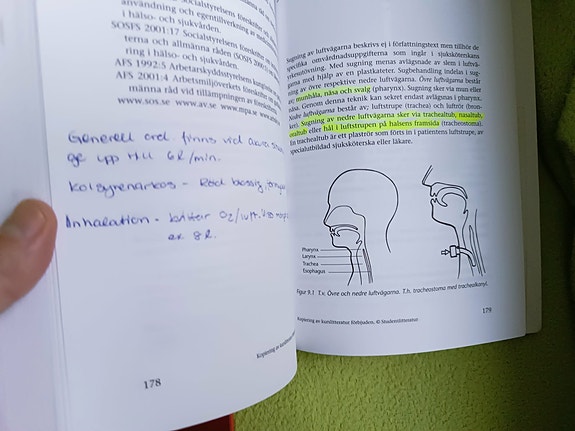 Socialstyrelsens föreskrifter
användning och egentillverkning av medicin
i hälso- och sjukvården.
SOSFS 2001:17 Socialstyrelsens föreskrifter
terna och allmänna råden (SOSFS
ring i hälso- och sjukvården.
AFS 1992:5 Arbetarskyddsstyrelsens kungörelse
AFS 2001:4 Arbetsmiljöverkets föreskrifter
männa råd vid tillämpningen av föreskrift
www.sos.se www.av.se www.mpa.se
Generell ord. finns vid akuta
ge upp till 6L/min.
Kolsyrenarkos - Röd
Inhalation - O2/luft.
ex 8L.
Kopiering av kurslitteratur
178
Sugning av luftvägarna beskrivs ej i författningstext men tillhör de
specifika omvårdnadsuppgifterna som ingår i sjuksköterskans
yrkesutövning. Med sugning menas avlägsnade av slem i luftvä-
garna med hjälp av en plastkateter. Sugbehandling indelas i sug-
ning av övre respektive nedre luftvägarna. Övre luftvägarna består
av; munhåla, näsa och svalg (pharynx). Sugning sker via mun eller
näsa. Genom denna teknik kan sekret endast avlägsnas i pharynx.
Nedre luftvägarna består av; luftstrupe (trachea) och luftrör (bron-
ker). Sugning av nedre luftvägarna sker via trachealtub, nasaltub,
oraltub eller hål i luftstrupen på halsens framsida (tracheostoma).
En trachealtub är ett plaströr som förts in i patientens luftstrupe, av
specialutbildad sjuksköterska eller läkare.
Pharynx
Larynx
Trachea
Esophagus
Figur 9.1 T.v. Övre och nedre luftvägarna. T.h. tracheostoma med trachealkanyl.
Kopiering av kurslitteratur förbjuden. © Studentlitteratur
179